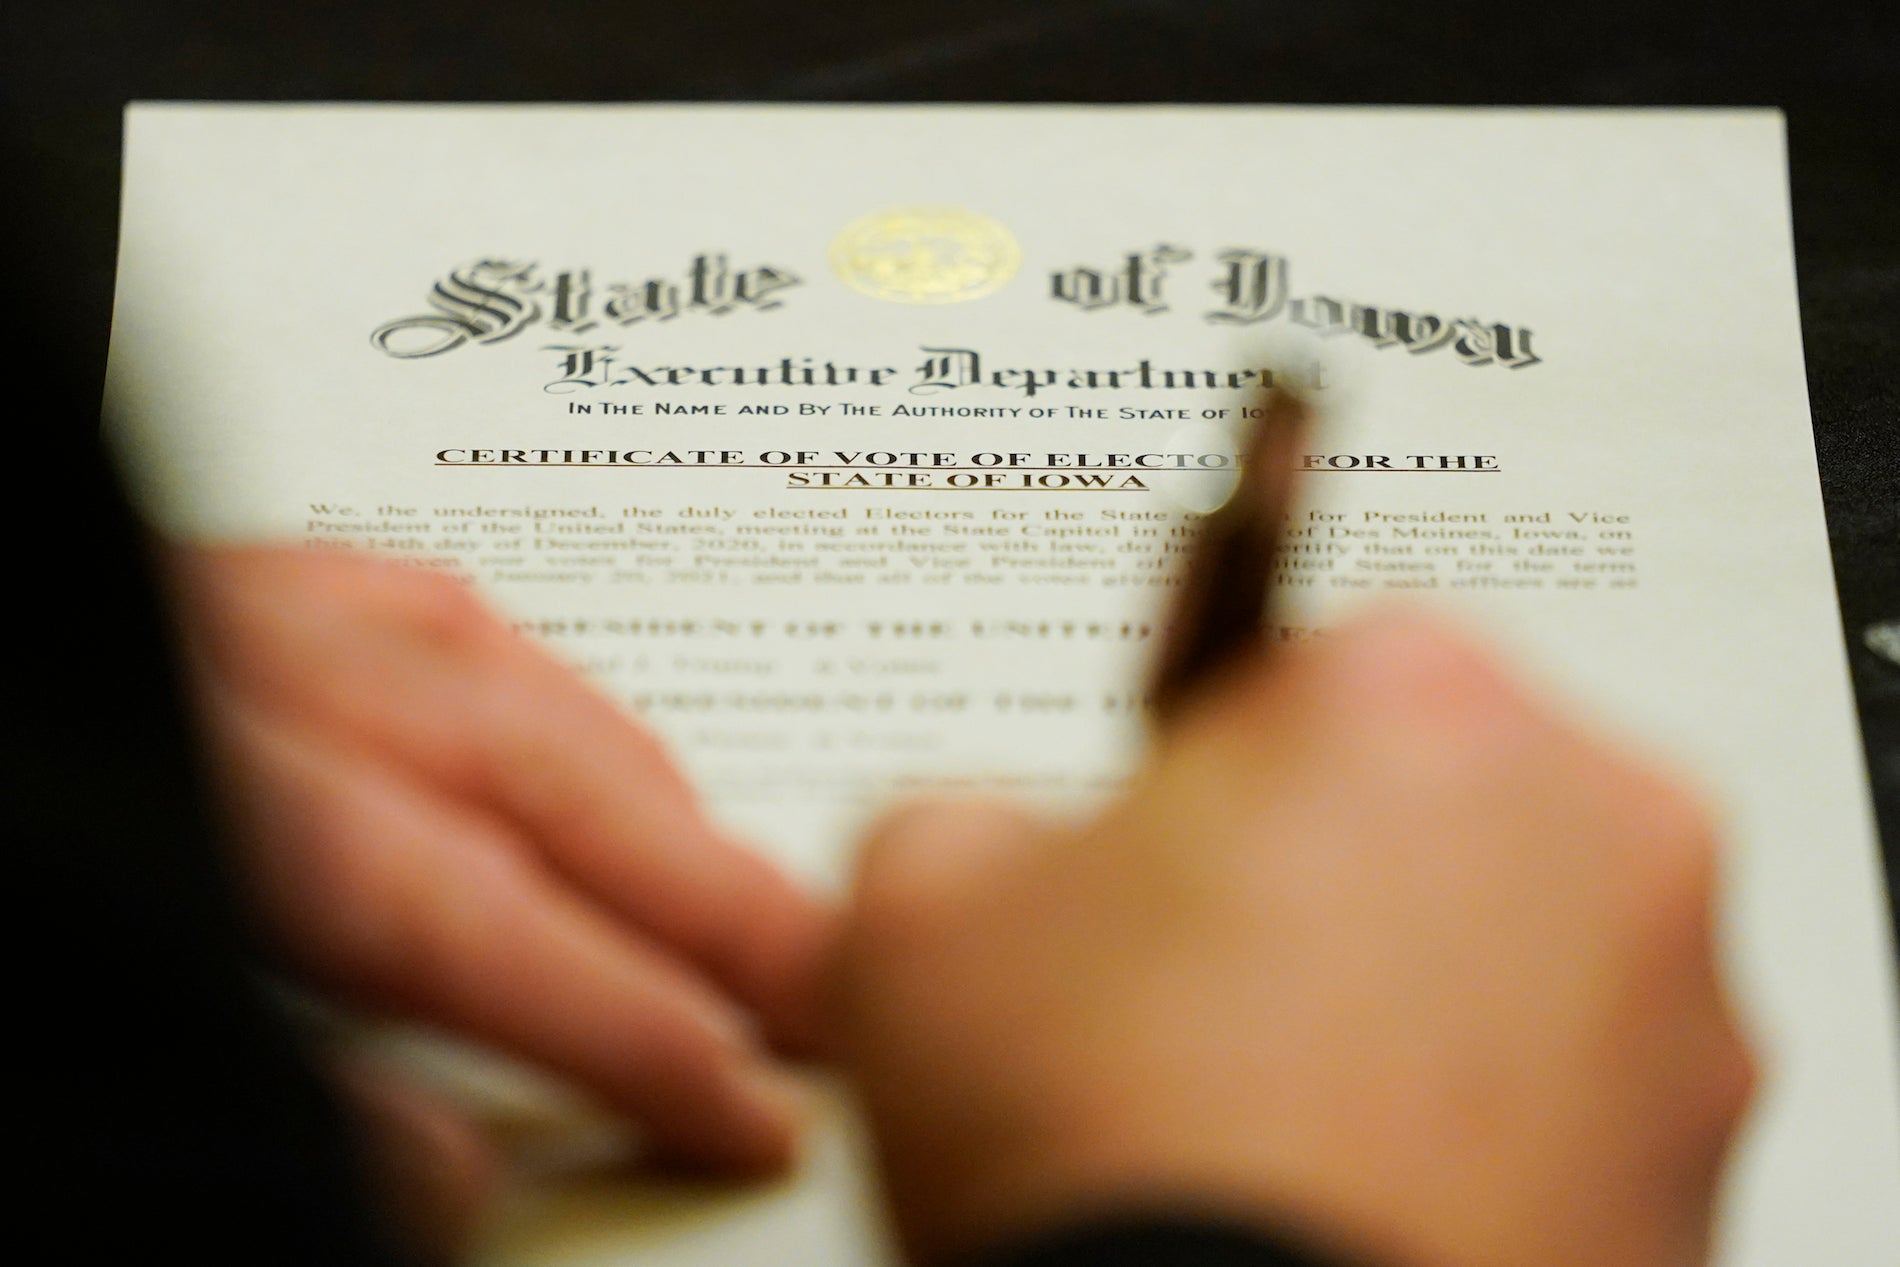 State of Iowa
Executive Department
IN THE NAME AND BY THE AUTHORITY OF THE STATE OF
CERTIFICATE OF VOTE OF FOR THE
STATE OF IOWA
We, the undersigned, the duly elected Electors for the State for President and Vice
President of the United States, meeting at the State Capitol in of Des Moines, Iowa, on
this 14th day of December, 2020, in accordance with law, do that on this date we
given our votes for President and Vice President of States for the term
January 20, 2021, and that all of the votes given for the said offices are as
PRESIDENT OF THE UNITED
J. Trump 6 Votes
PRESIDENT OF THE